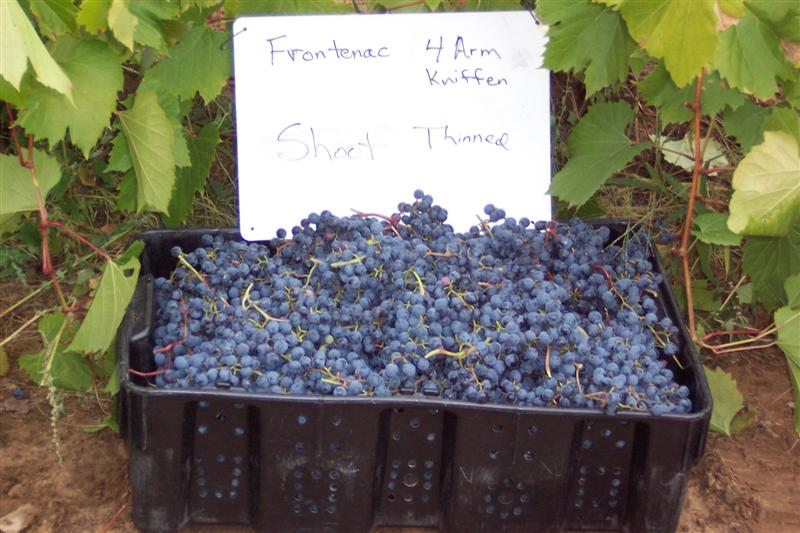 Frontenac 4 Arm
Kniffen
Shoot Thinned